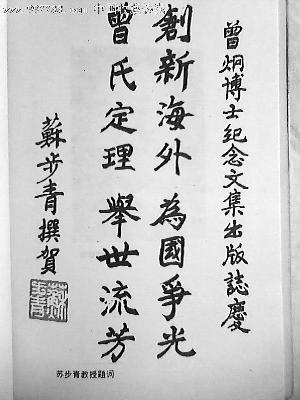 曾炯博士纪念文集出版誌慶
創新海外 為國爭光
曾氏定理 舉世流芳
蘇步青撰賀
苏步青教授题词